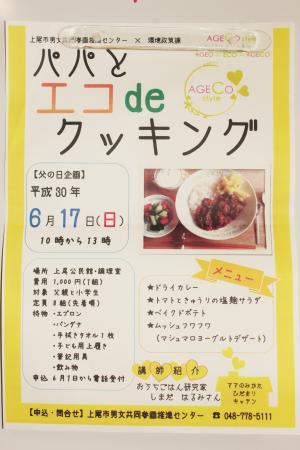 上尾市男女共同参画推進センター × 環境政策課
AGECo style
AGEO × ECO = AGECO
パパと
エコ de
クッキング
AGECo
style
【父の日企画】
平成30年
6月17日(日)
10時から13時
場所 上尾公民館・調理室
費用 1,000円(1組)
対象 父親と小学生
定員 8組(先着順)
持物 ・エプロン
・バンダナ
・手拭きタオル1枚
・子ども用上履き
・筆記用具
・飲み物
申込 6月1日から電話受付
メニュー
★ドライカレー
★トマトときゅうりの塩麹サラダ
★ベイクドポテト
★ムッシュフワフワ
(マシュマロヨーグルトデザート)
講師紹介
おうちごはん研究家
しまだ はるみさん
ママのみかた
ひだまり
キッチン
【申込・問合せ】上尾市男女共同参画推進センター ☎ 048-778-5111